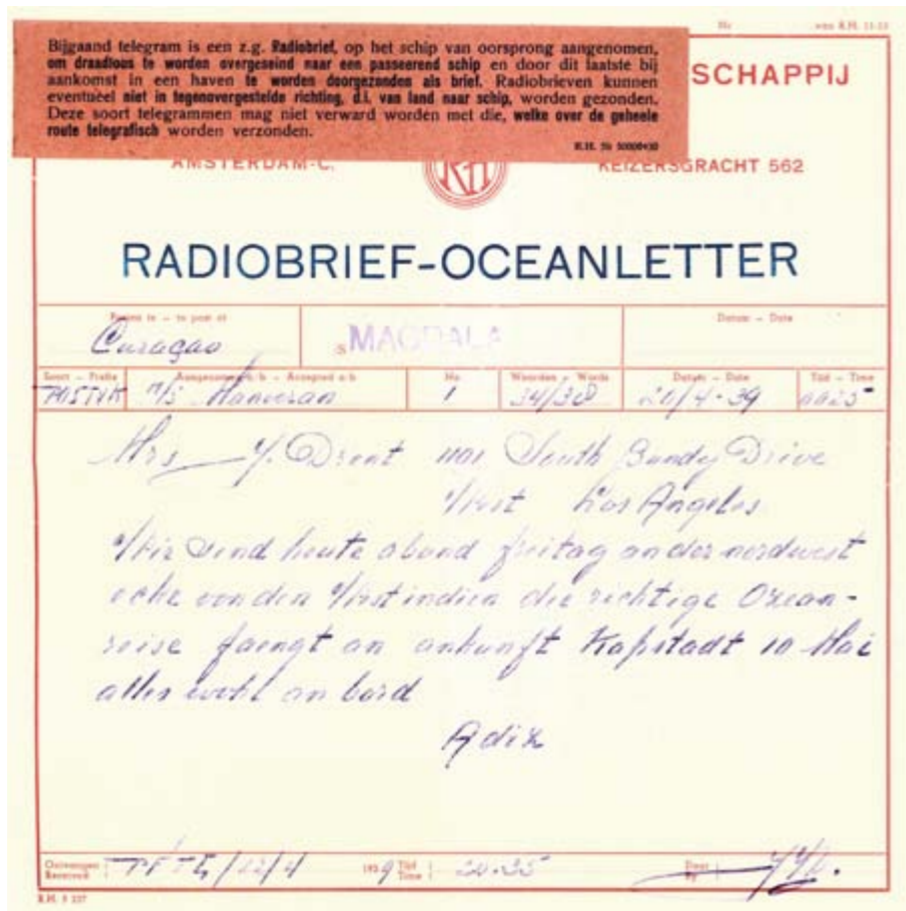 Bijgaand telegram is een z.g. Radiobrief, op het schip van oorsprong aangenomen,
om draadloos te worden overgeseind naar een passeerend schip en door dit laatste bij
aankomst in een haven te worden doorgezonden als brief. Radiobrieven kunnen
eventuëel niet in tegenovergestelde richting, d.i. van land naar schip, worden gezonden.
Deze soort telegrammen mag niet verward worden met die, welke over de geheele
route telegrafisch worden verzonden.
SCHAPPIJ
AMSTERDAM-C. RH KEIZERSGRACHT 562
RADIOBRIEF-OCEANLETTER
to post at Datum – Date
Curaçao MAGDALA
Soort – Prefix Aangenomen a/b – Accepted a/b No. Woorden – Words Datum – Date Tijd – Time
m/s 1 34/38 20/4-39 0025
Mrs South Bundy Drive
West Los Angeles
Wir sind heute abend freitag an der nordwest
ecke von den Westindien die richtige Ozean-
reise faengt an ankunft Kapstadt 10 Mai
alles wohl an bord
Adix
Ontvangen Received 1939 Tijd Time 20.35 Door by
R.H. 8 237